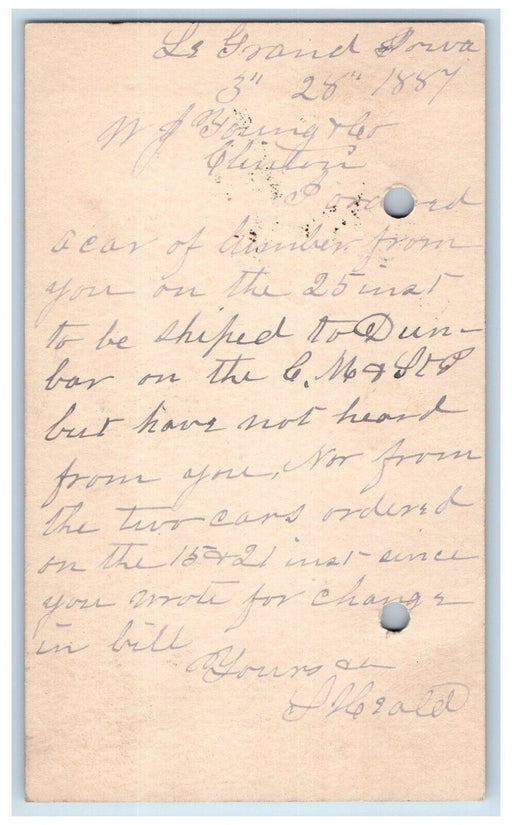 Le Grand Iowa
3" 28" 1887
W J Young & Co
Clinton
I ordered
a car of lumber from
you on the 25 inst
to be shiped to Dun-
bar on the C. M & St P
but have not heard
from you, Nor from
the two cars ordered
on the 15 & 21 inst since
you wrote for change
in bill
Yours &c